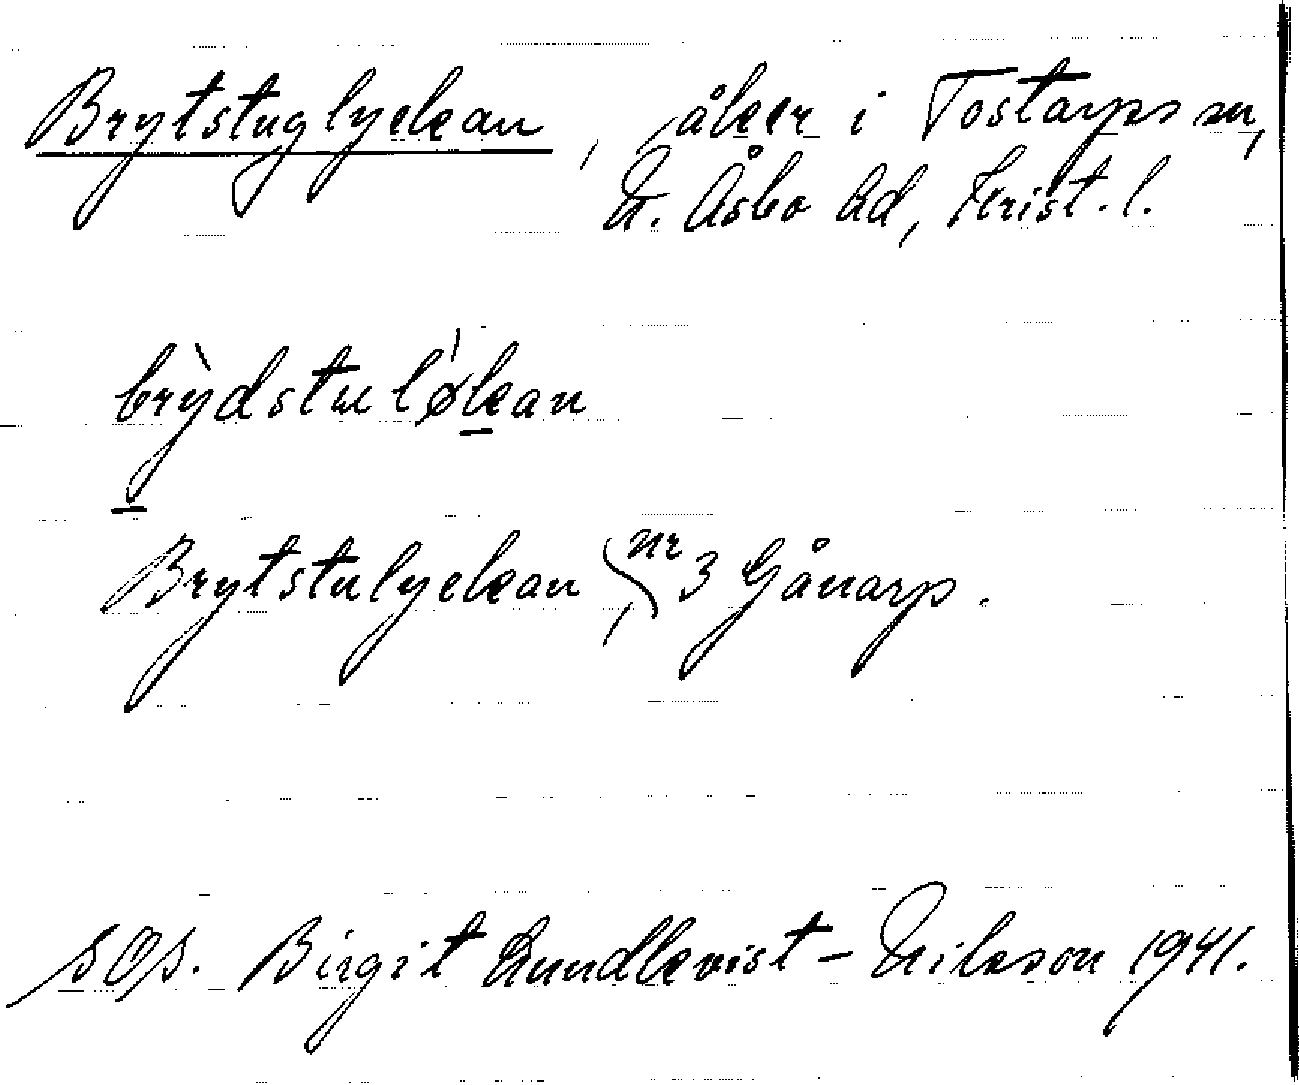 Brytstuglyckan, åker i Tostarps sn,
N. Åsbo hd, Krist. l.
brỳdstuløkan
Brytstulyckan, nr 3 Gånarp.
SOS. Birgit Lundkvist - Nilsson 1941.